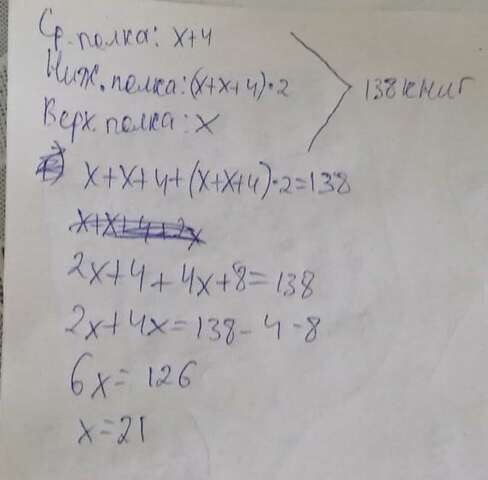 Ср. полка: x+4
Ниж. полка: (x+x+4)·2
138 книг
Верх. полка: x
x+x+4+(x+x+4)·2=138
2x+4+4x+8=138
2x+4x=138-4-8
6x=126
x=21